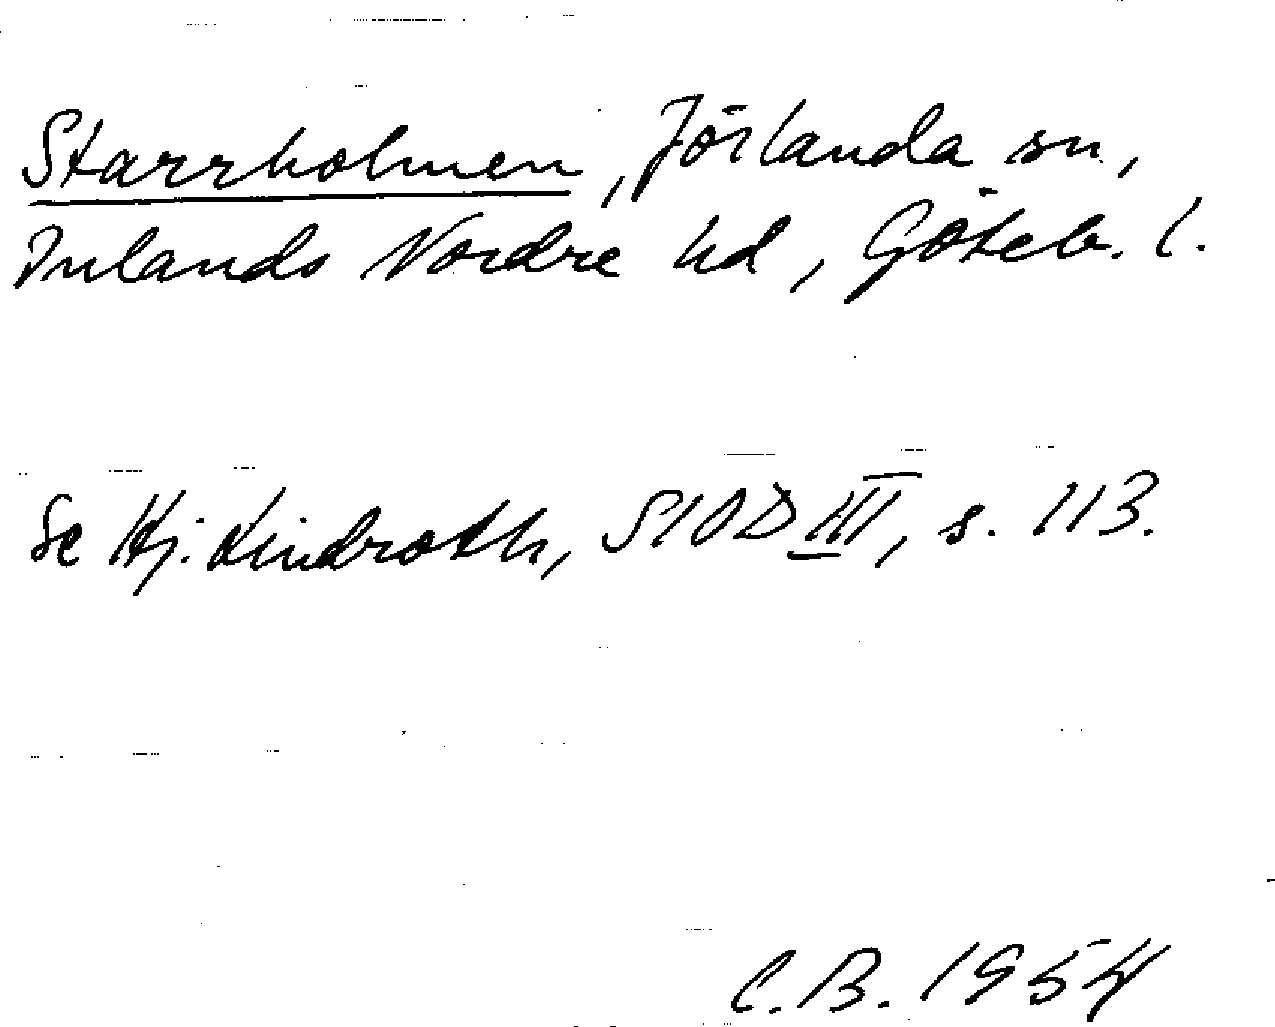 Starrholmen, Jörlanda sn,
Inlands Nordre hd, Göteb. l.
Se Hj. Lindroth, SIOD III, s. 113.
C.B. 1954